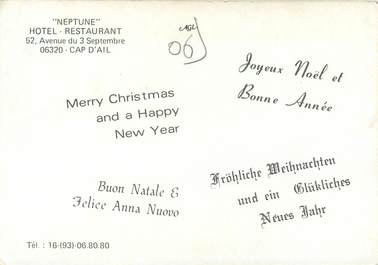 "NEPTUNE"
HOTEL - RESTAURANT
52, Avenue du 3 Septembre
06320 - CAP D'AIL
06
Joyeux Noël et
Bonne Année
Merry Christmas
and a Happy
New Year
Fröhliche Weihnachten
und ein Glükliches
Neues Jahr
Buon Natale &
Felice Anna Nuovo
Tél : 16-(93)-06.80.80